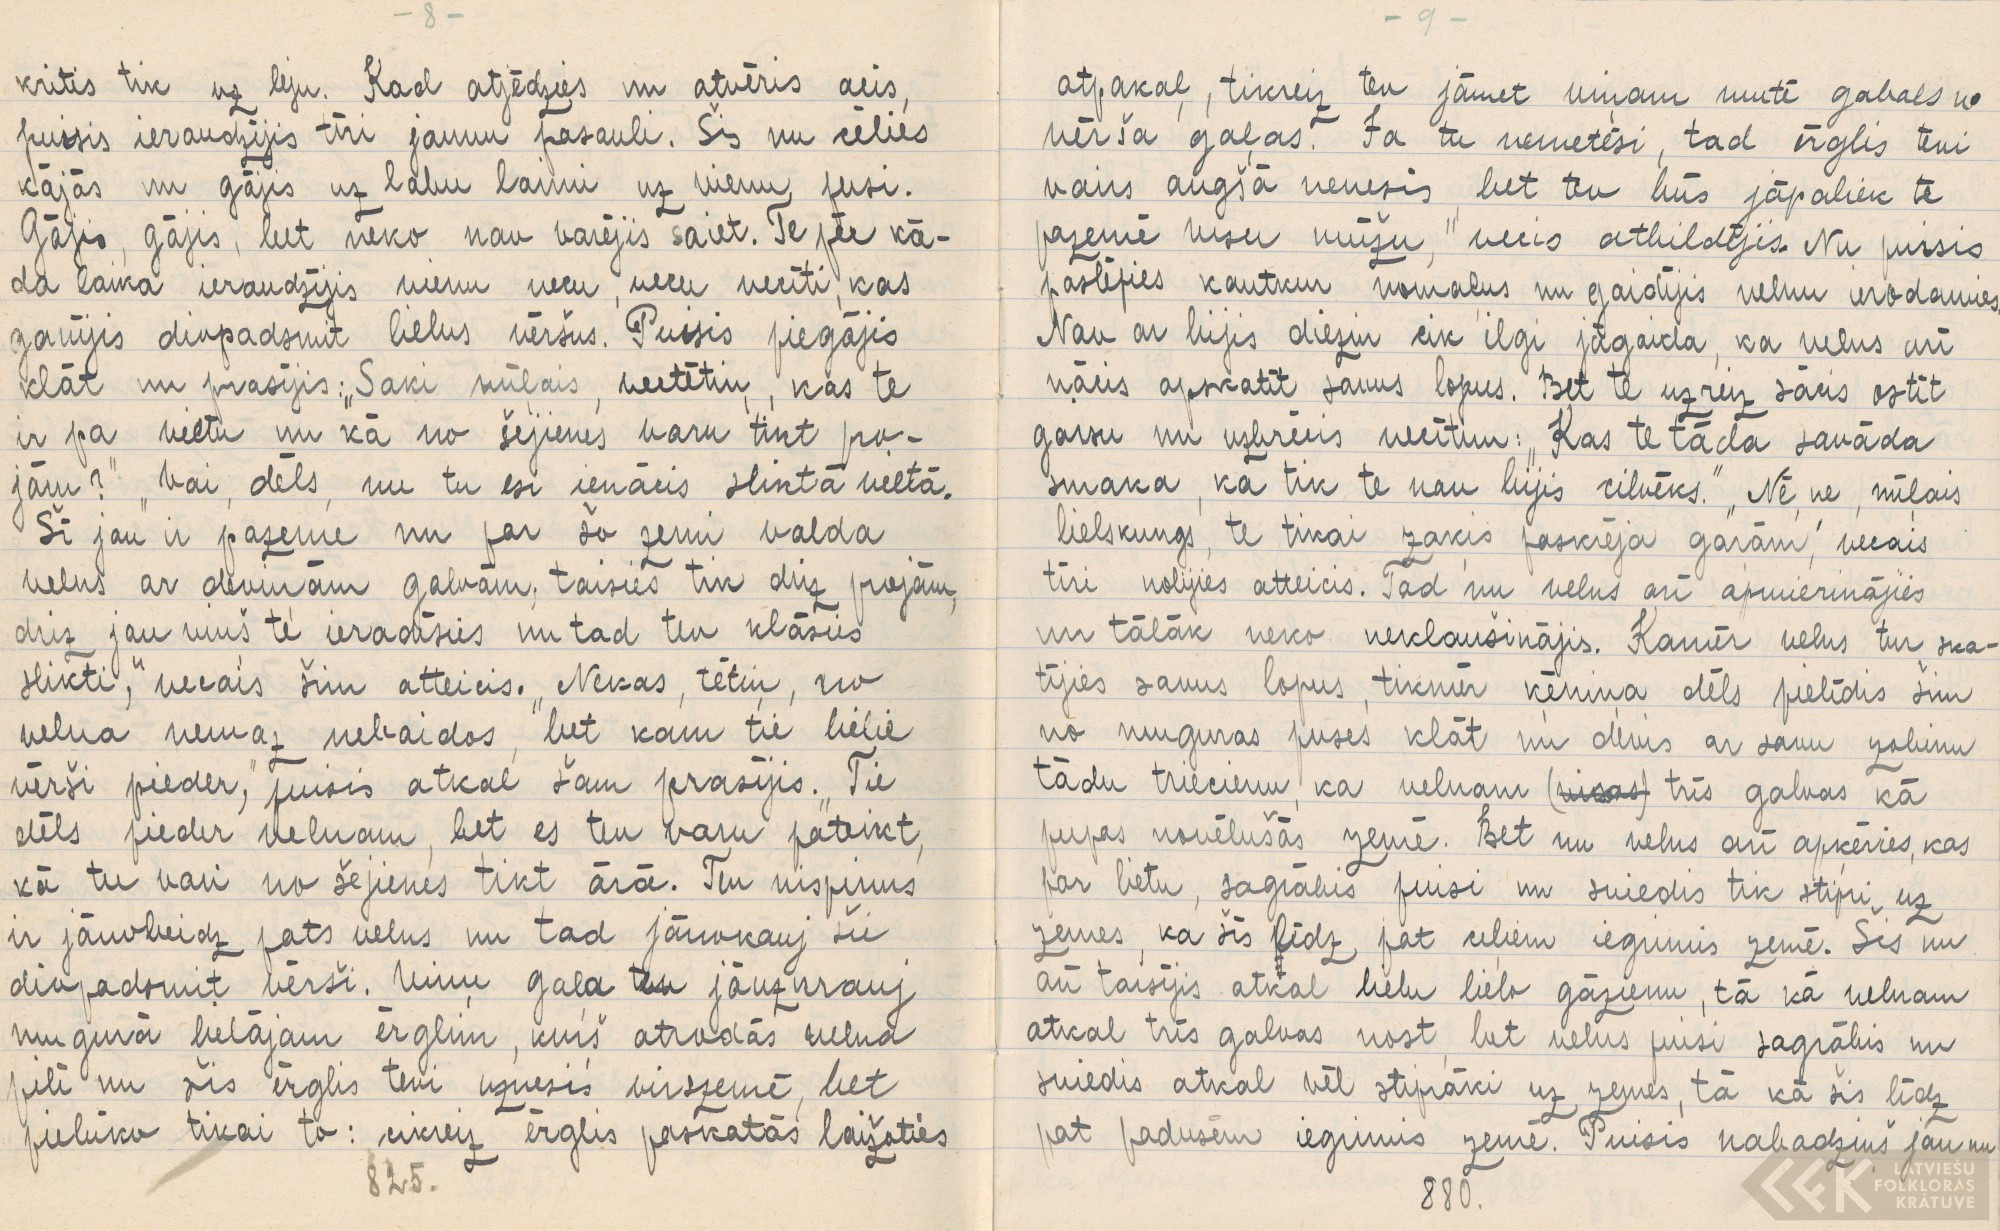 - 8 -
kritis tik uz leju. Kad atjēdzies un atvēris acis,
puisis ieraudzījis tīri jaunu pasauli. Šis nu cēlies
kājās un gājis uz labu laimi uz vienu pusi.
Gājis, gājis, bet neko nav varējis saiet. Te pēc kā-
da laika ieraudzījis vienu vecu, vecu vecīti, kas
ganījis divpadsmit lielus vēršus. Puisis piegājis
klāt un prasījis: „Saki mīļais, vectētiņ, kas te
ir pa vietu un kā no šejienes varu tikt pro-
jām?" „Vai, dēls, nu tu esi ienācis sliktā vietā.
Šī jau ir pazeme un par šo zemi valda
velns ar deviņām galvām; taisies tik drīz projām,
drīz jau viņš te ieradīsies un tad tev klāsies
slikti," vecais šim atteicis. „Nekas, tētiņ, no
velna nemaz nebaidos, bet kam tie lielie
vērši pieder," puisis atkal šam prasījis. „Tie
dēls pieder velnam, bet es tev varu pateikt,
kā tu vari no šejienes tikt ārā. Tev vispirms
ir jānobeidz pats velns un tad jānokauj šie
divpadsmit vērši. Viņu gaļa tev jāuzkrauj
mugurā lielājam ērglim, kuŗš atrodas velna
pilī un šis ērglis tevi uznesīs virszemē, bet
pielūko tikai to: cikreiz ērglis paskatās laižoties
825.
- 9 -
atpakaļ, tikreiz tev jāmet viņam mutē gabals no
vērša gaļas. Ja tu nemetīsi, tad ērglis tevi
vairs augšā nenesīs, bet tev būs jāpaliek te
pazemē visu mūžu," vecis atbildējis. Nu puisis
paslēpies kautkur nomaļus un gaidījis velnu ierodamies.
Nav ar bijis diezin cik ilgi jāgaida, ka velns arī
nācis apskatīt savus lopus. Bet te uzreiz sācis ostīt
gaisu un uzbrēcis vecītim: „Kas te tāda savāda
smaka, ka tik te nav bijis cilvēks." „Nē, ne, mīļais
lielskungs, te tikai zaķis paskrēja garām," vecais
tīri nobijies atteicis. Tad nu velns arī apmierinājies
un tālāk neko neklaušinājis. Kamēr velns tur ska-
tījies savus lopus, tikmēr ķēniņa dēls pielīdis šim
no muguras puses klāt un devis ar savu zobinu
tādu triecienu, ka velnam (visas) trīs galvas kā
pupas novēlušās zemē. Bet nu velns arī apķēries, kas
par lietu, sagrābis puisi un sviedis tik stipri uz
zemes, ka šis līdz pat ceļiem iegrimis zemē. Šis nu
arī taisījis atkal lielu lielo gāzienu, tā kā velnam
atkal trīs galvas nost, bet velns puisi sagrābis un
sviedis atkal vēl stiprāki uz zemes, tā kā šis līdz
pat padusēm iegrimis zemē. Puisis nabadziņš jau nu
880.
LATVIEŠU
FOLKLORAS
KRĀTUVE